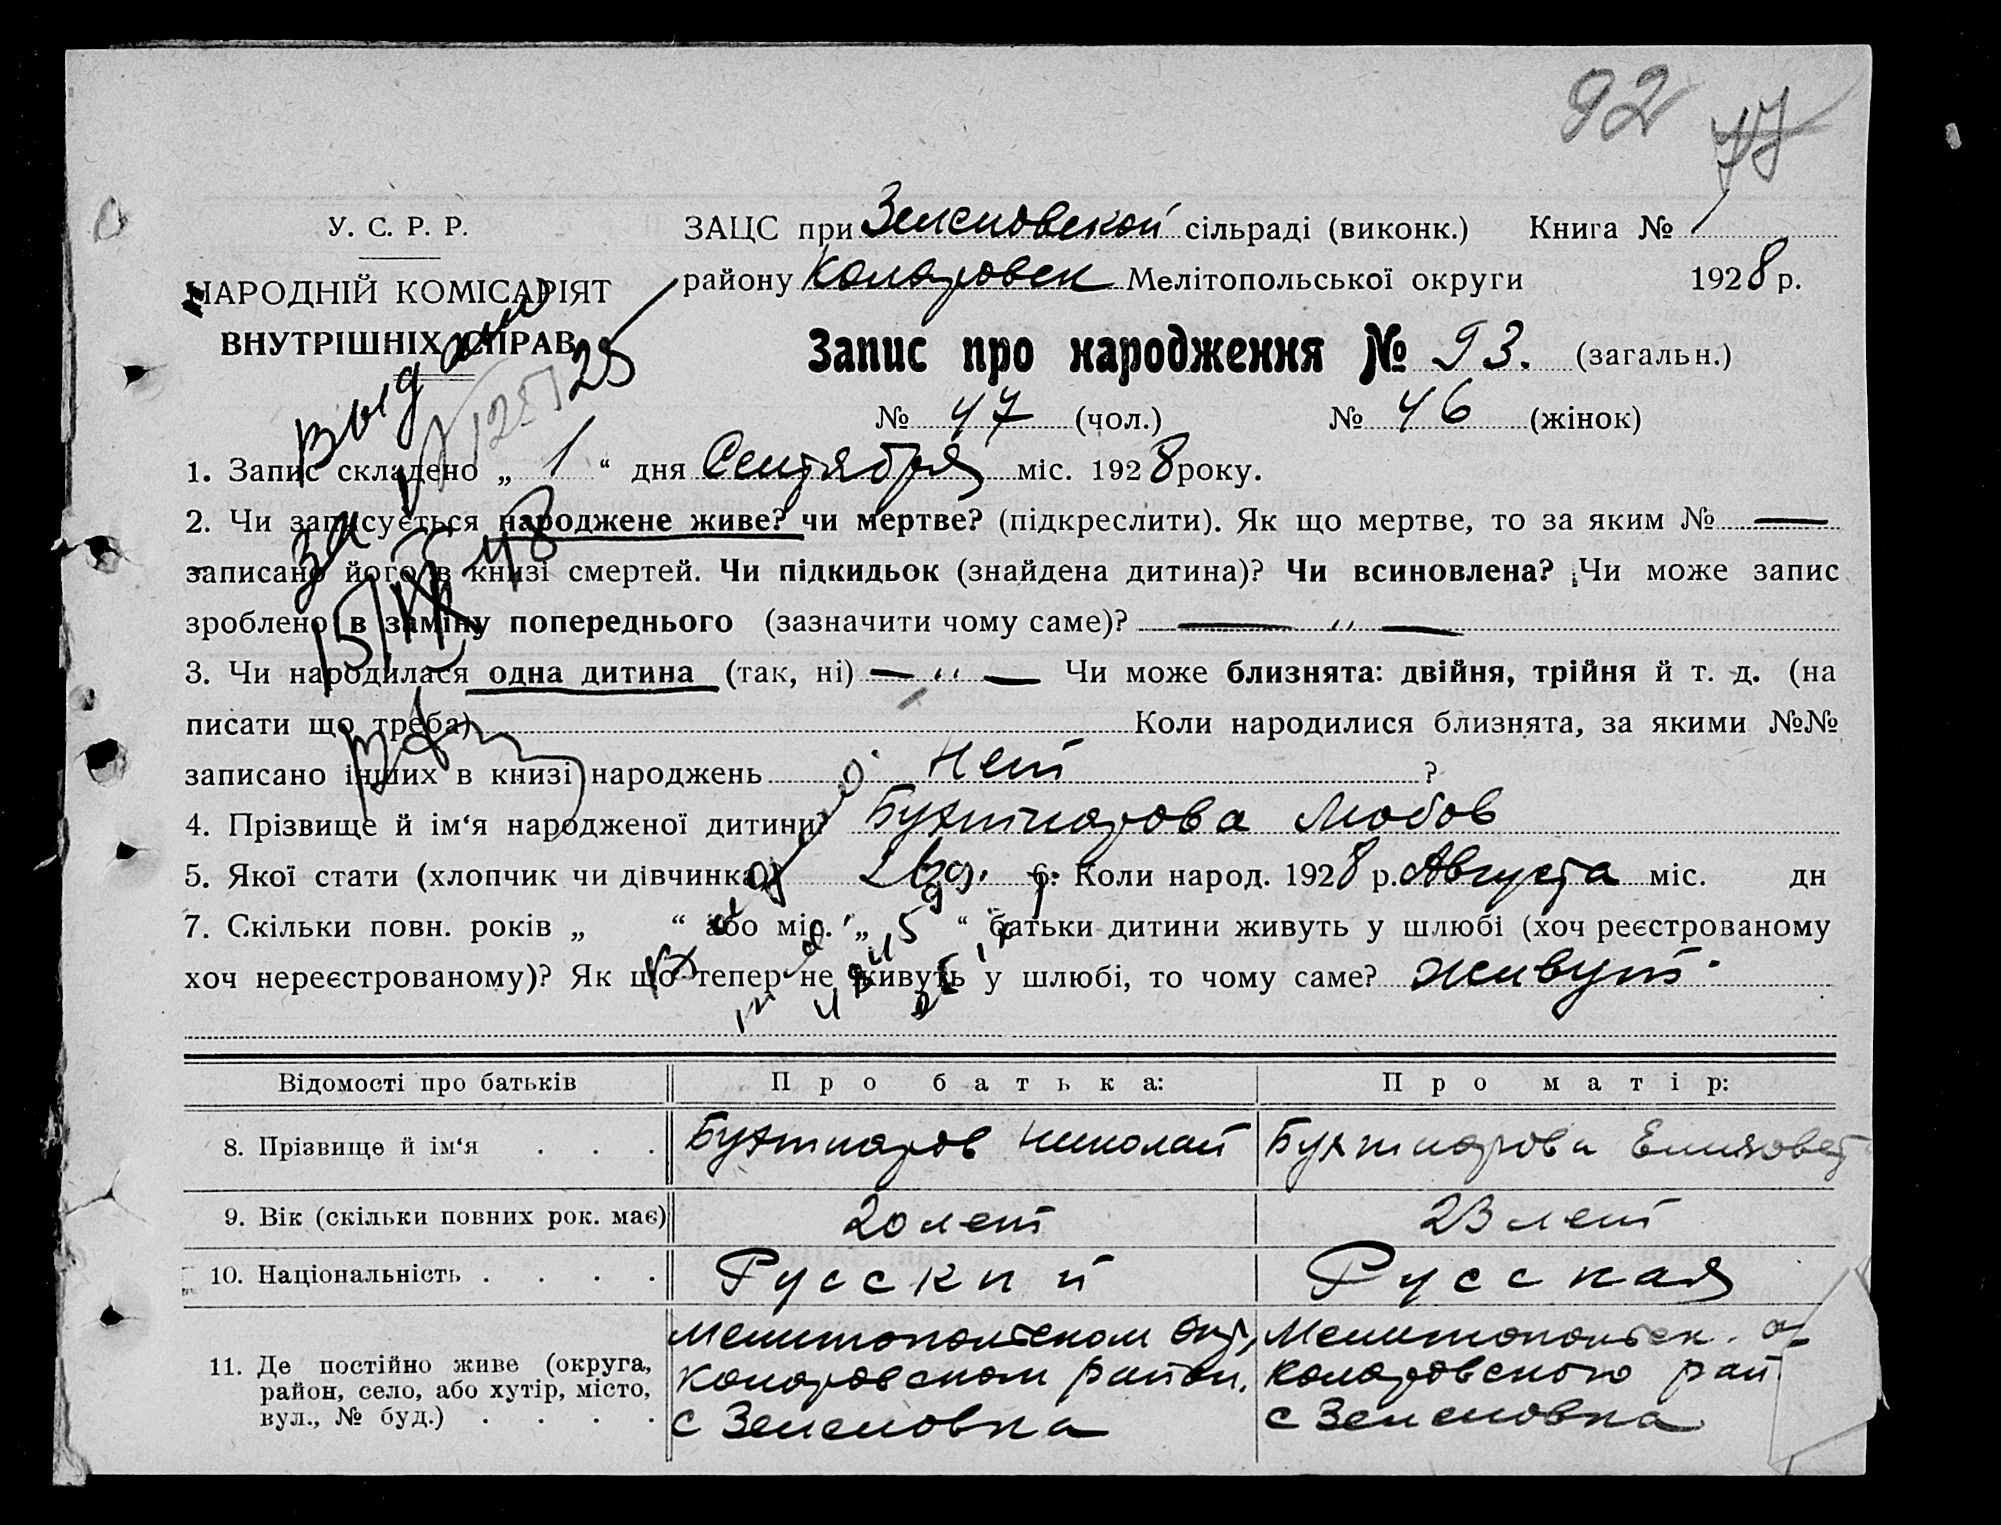 92 47
У. С. Р. Р.
НАРОДНІЙ КОМІСАРІЯТ
ВНУТРІШНІХ СПРАВ
ЗАЦС при Зеленовской сільраді (виконк.) Книга № 1
району Коларовск Мелітопольської округи 1928 р.
Запис про народження № 93. (загальн.)
№ 47 (чол.) № 46 (жінок)
1. Запис складено „ 1 “ дня Сентября міс. 1928 року.
2. Чи записується народжене живе? чи мертве? (підкреслити). Як що мертве, то за яким № —
записано його в книзі смертей. Чи підкидьок (знайдена дитина)? Чи всиновлена? Чи може запис
зроблено в заміну попереднього (зазначити чому саме)? — „ —
3. Чи народилася одна дитина (так, ні) — „ — Чи може близнята: двійня, трійня й т. д. (на
писати що треба) Коли народилися близнята, за якими №№
записано інших в книзі народжень нет ?
4. Прізвище й ім‘я народженої дитини? Бухтиарова Любов
5. Якої стати (хлопчик чи дівчинка) 6. Коли народ. 1928 р. Августа міс. дн
7. Скільки повн. років „ “ або міс. „ 5 “ батьки дитини живуть у шлюбі (хоч реєстрованому
хоч нереєстрованому)? Як що тепер не живуть у шлюбі, то чому саме? живут.
Відомості про батьків Про батька: Про матір:
8. Прізвище й ім‘я . . . Бухтиаров Николай Бухтиарова Елизовет
9. Вік (скільки повних рок. має) 20 лет 23 лет
10. Національність . . . . Русский Русская
11. Де постійно живе (округа, район, село, або хутір, місто, вул., № буд.) . . . . Мелитопольском окр, Коларовском район. с Зеленовка Мелитопольск. о Коларовского рай с Зеленовка
выдан
за
15/IX 48